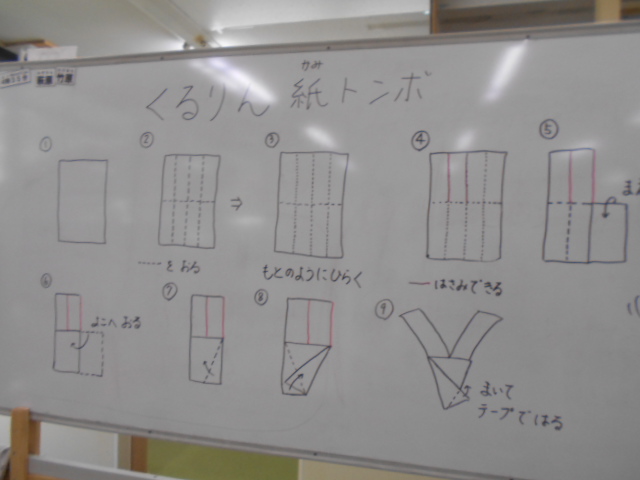 かみ
くるりん 紙トンボ
①
②
③
④
⑤
⇒
---- を おる
もとのようにひらく
— はさみできる
⑥
よこへ おる
⑦
⑧
⑨
まいて
テープではる